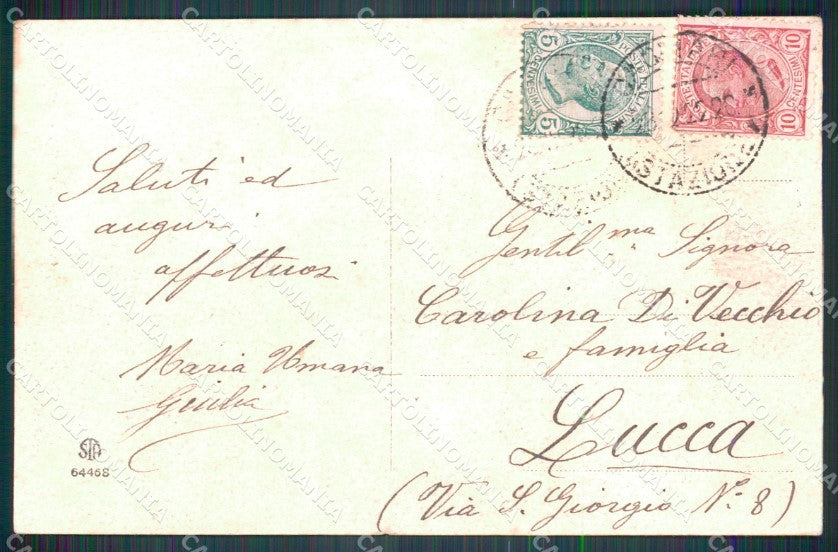 Saluti ed
auguri
affettuosi
Maria Umana
Giulia
STA
64468
5 5
CENTESIMI
10 10
CENTESIMI
STAZIONE
Gentil.ma Signora
Carolina Di Vecchio
e famiglia
Lucca
(Via S. Giorgio N.° 8)
CARTOLINOMANIA